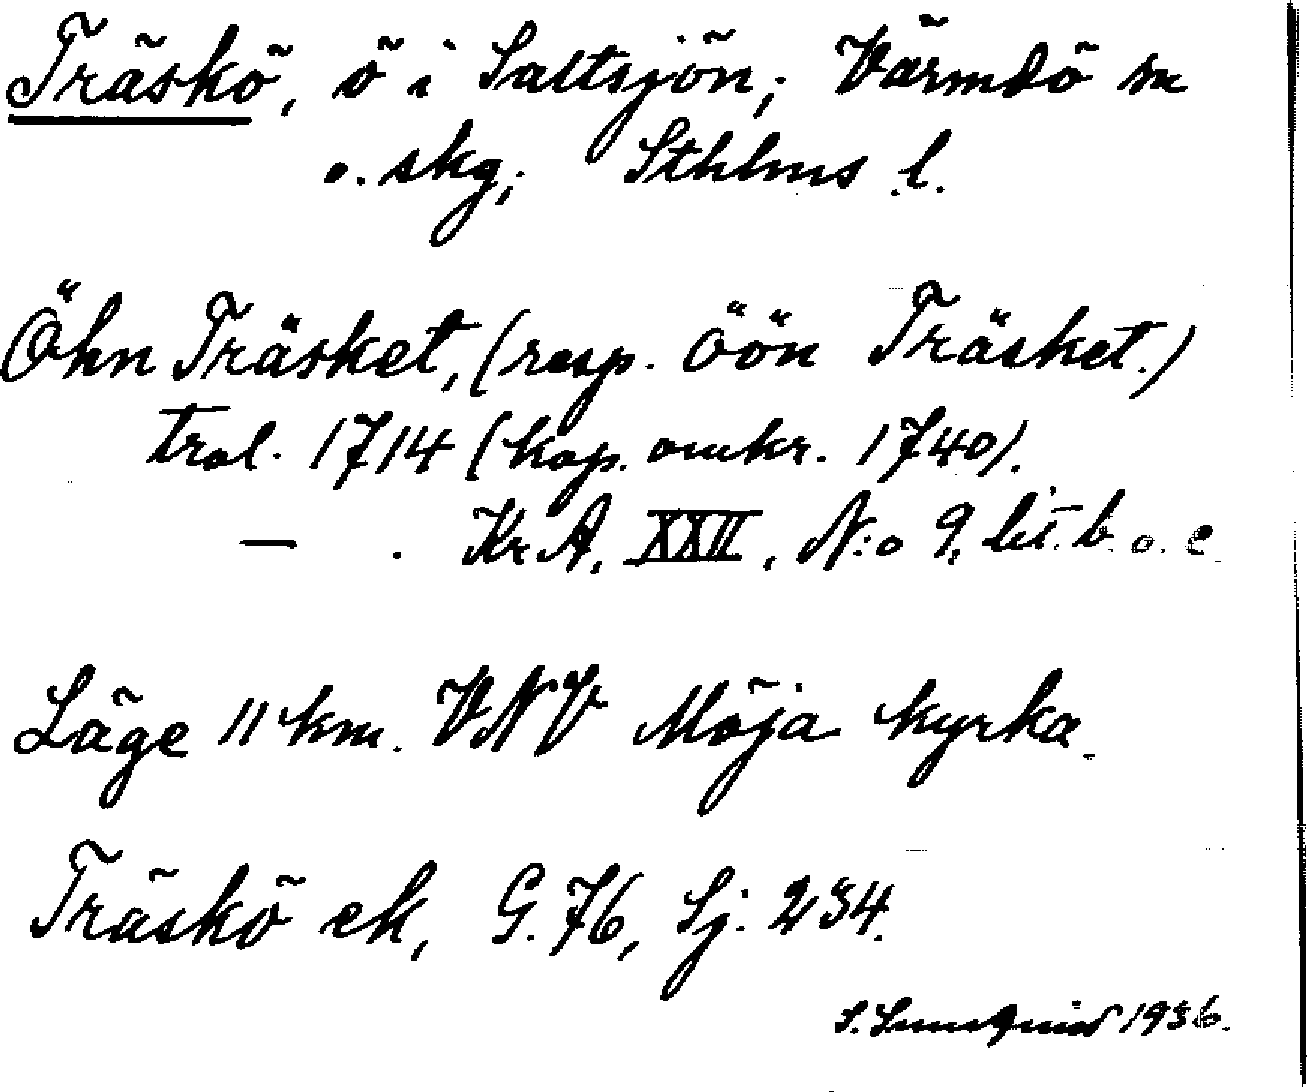 Träskö, ö i Saltsjön; Värmdö sn
o. skg; Sthlms l.
Öhn Träsket, (resp. öön Träsket.)
trol. 1714 (kop. omkr. 1740).
— . Kr.A. XXII, N:o 9, lit. b. o. c.
Läge 11 km. VNV Möja kyrka.
Träskö ek, G. 76, Sj. 234.
S. 1936.